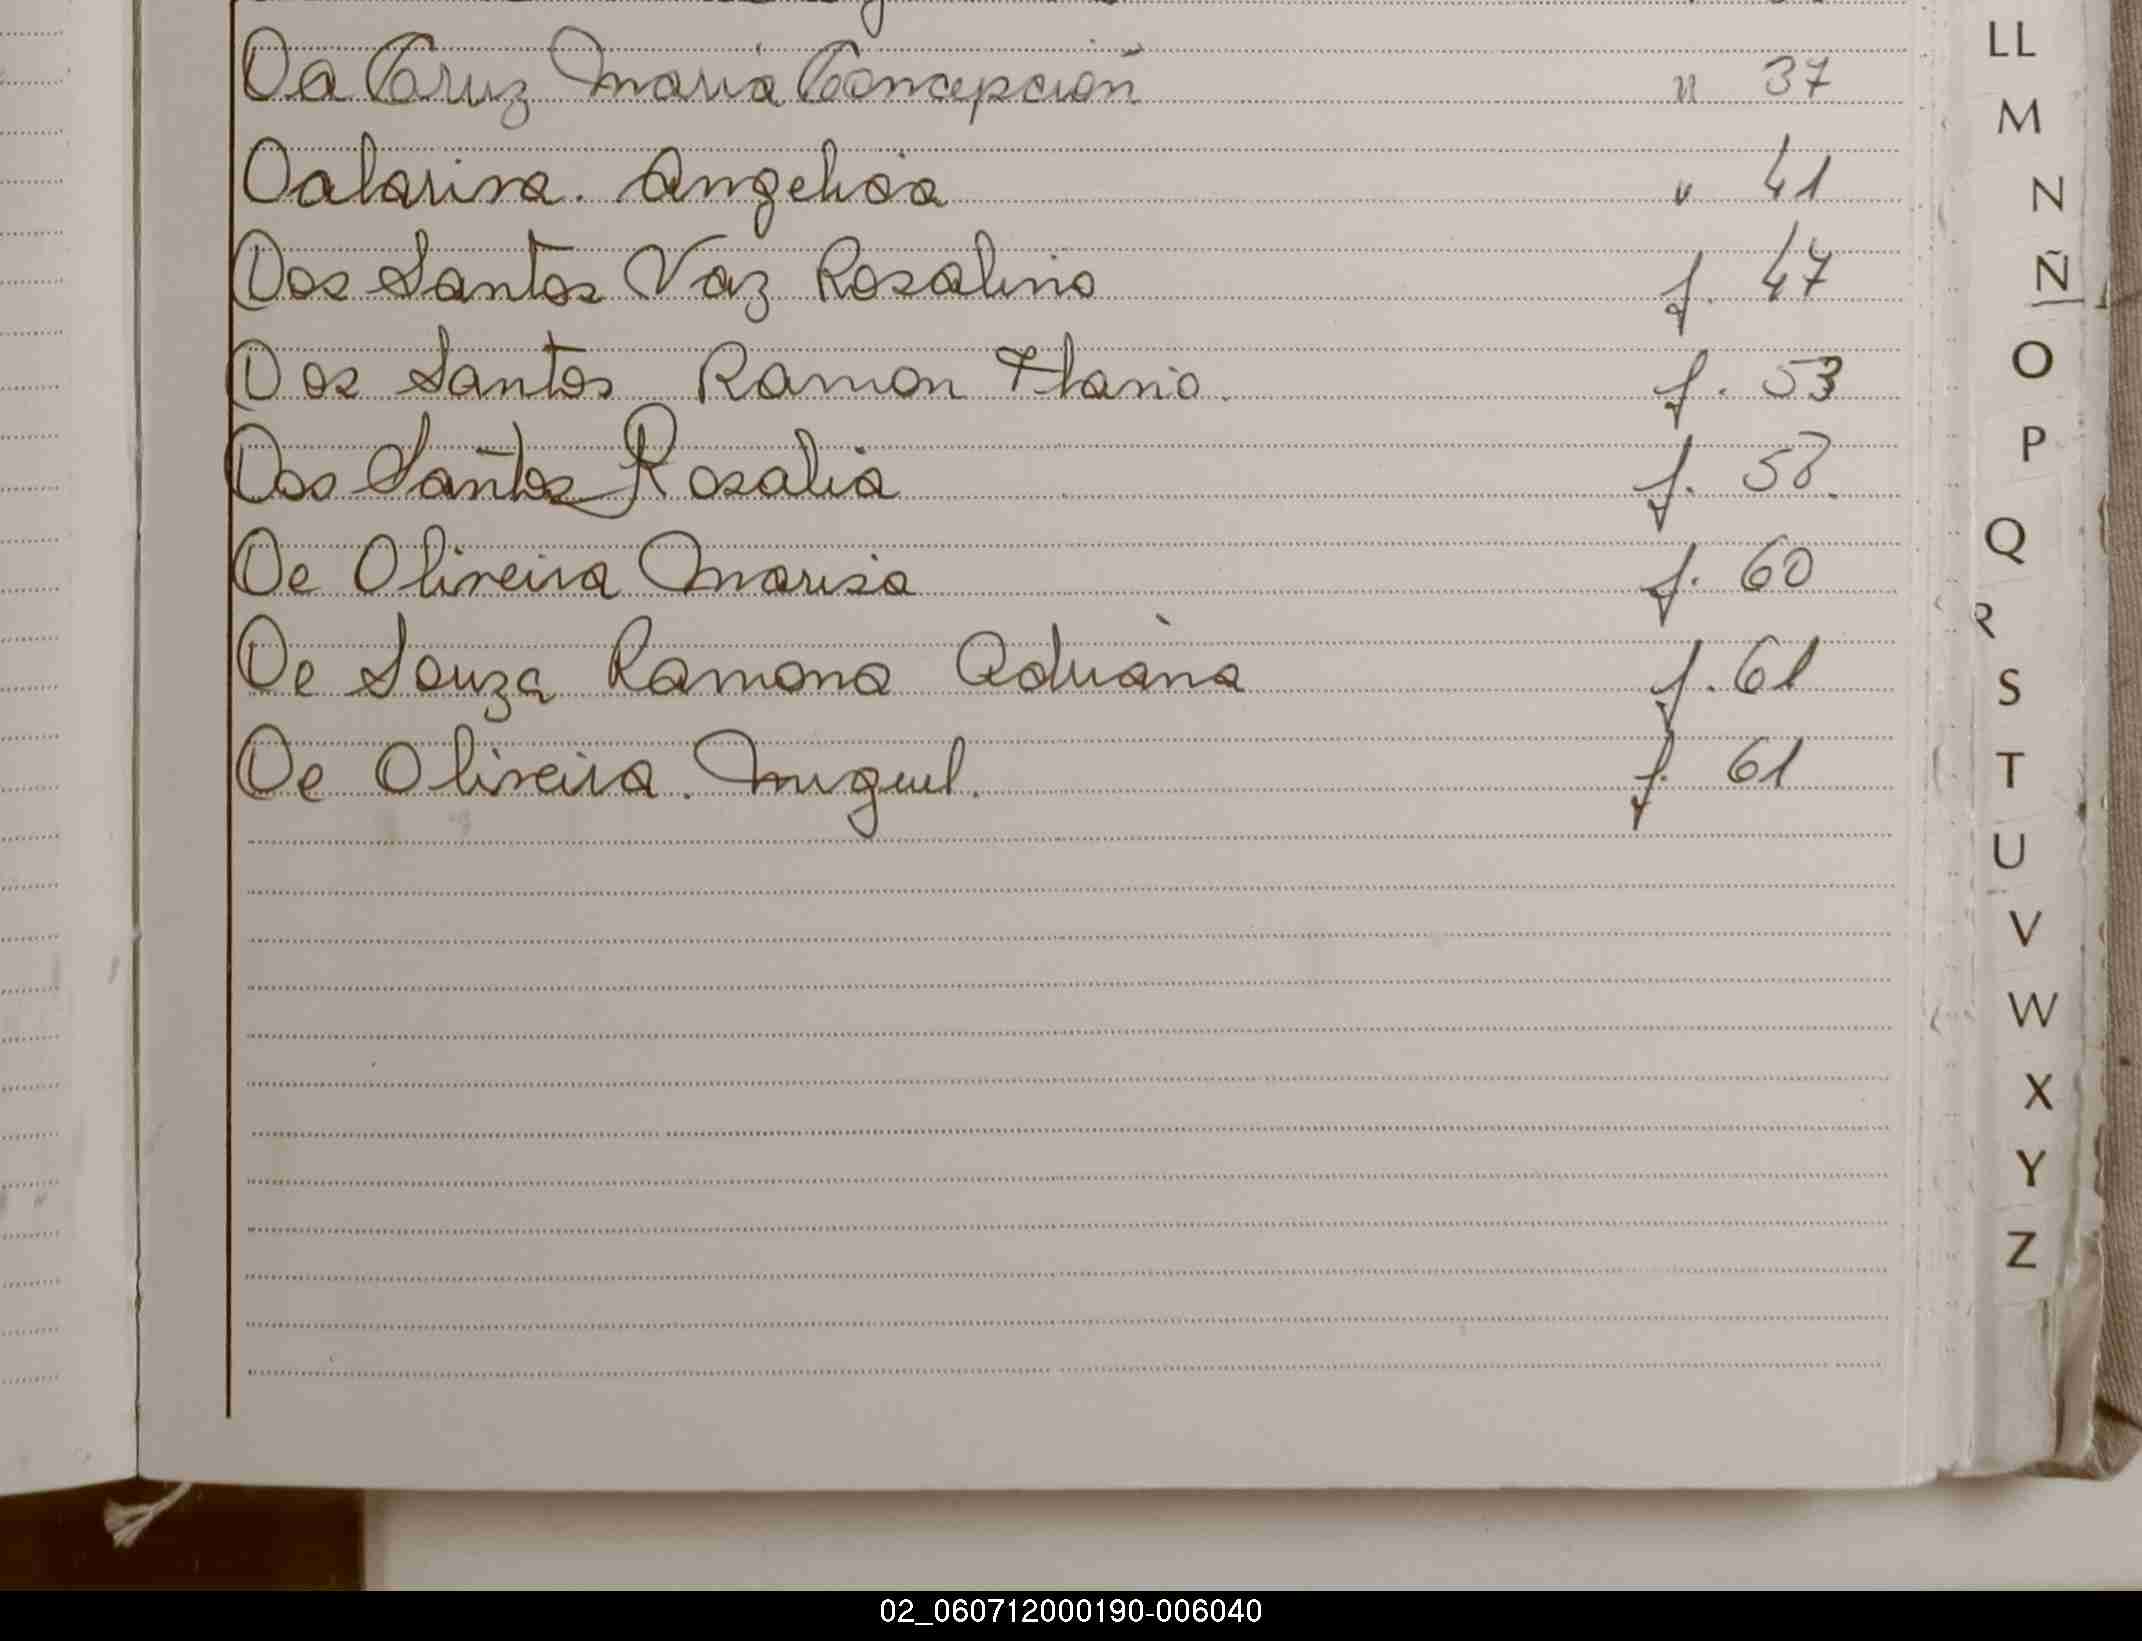 Da Cruz Maria Concepción " 37
Dalarisa. Angelica " 41
Dos Santos Vaz Rosalino f. 47
Dos Santos Ramon Flavio. f. 53
Dos Santos Rosalia f. 58.
De Oliveira Marisa f. 60
De Souza Ramona Adriana f. 61
De Oliveira. Miguel. f. 61
LL
M
N
Ñ
O
P
Q
R
S
T
U
V
W
X
Y
Z
02_060712000190-006040